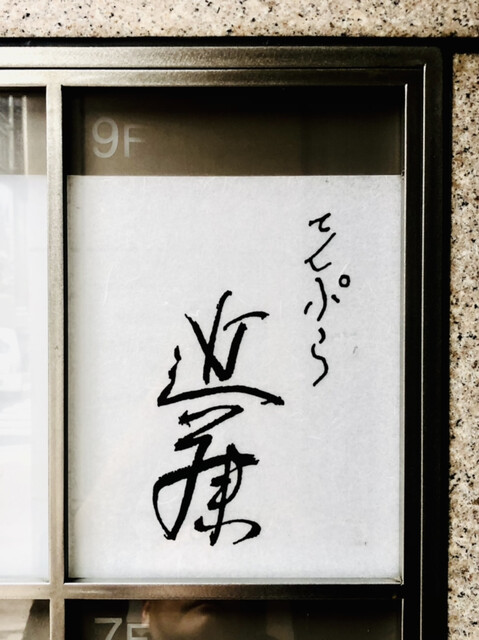 9F
てんぷら
近藤
7F